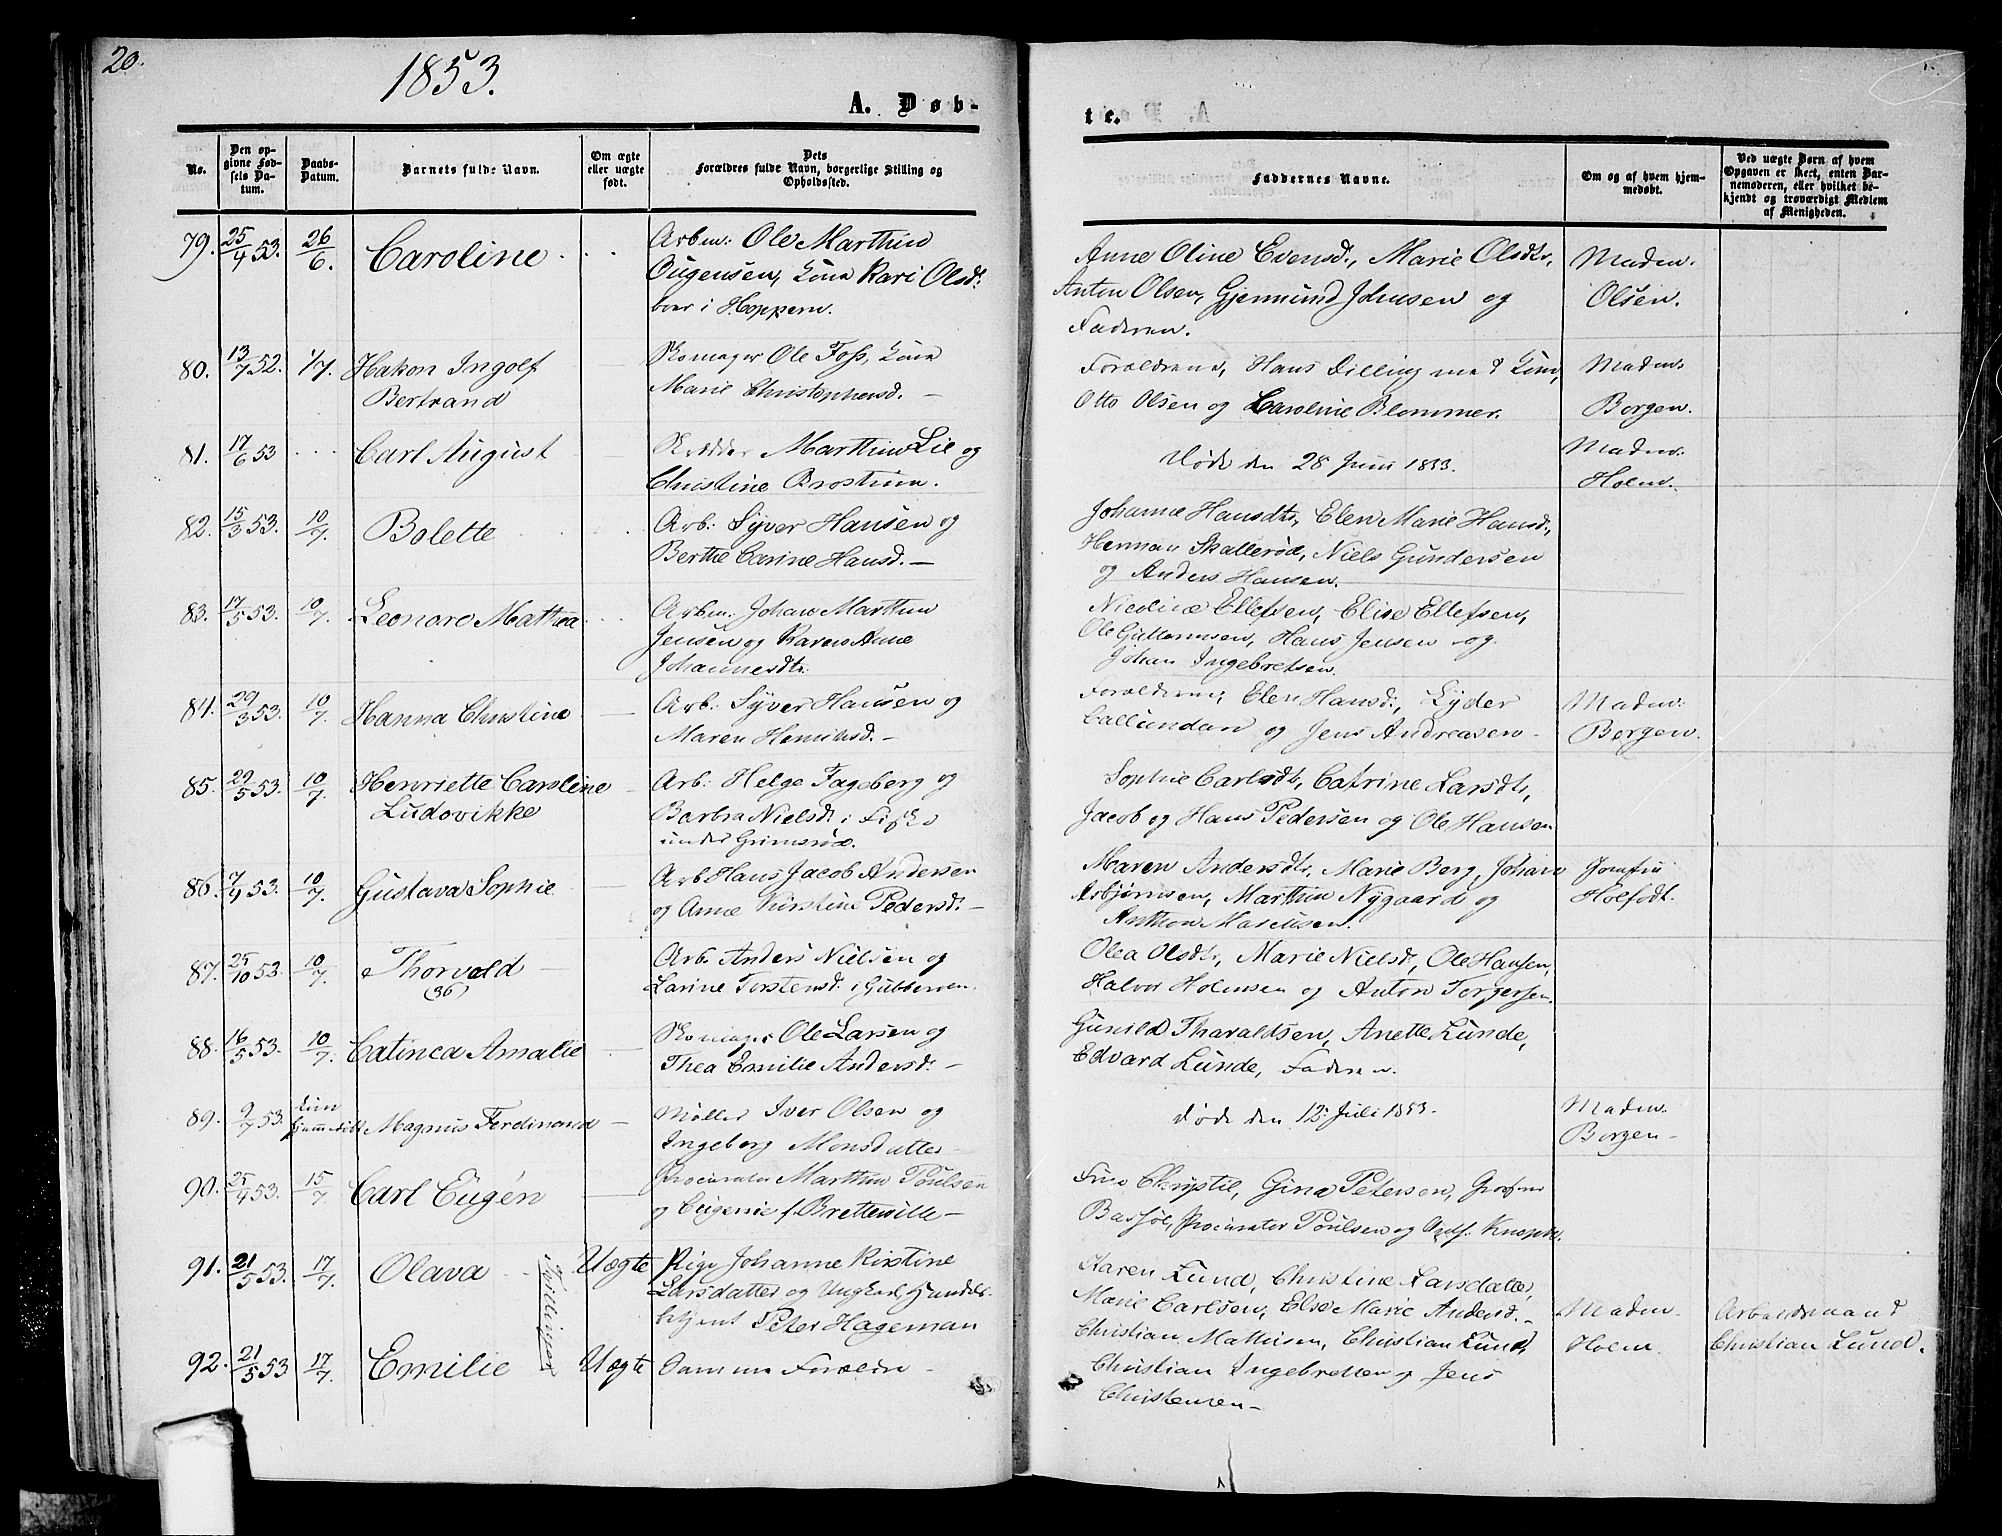 20.
1853.
A. Døb-
te.
No.
Den op-
givne Fød-
sels Da-
tum.
Daabs-
Datum.
Barnets fulde Navn.
Om ægte
eller uægte
født.
Dets
Forældres fulde Navn, borgerlige Stilling og
Opholdssted.
Faddernes Navne.
Om og af hvem hjem-
medøbt.
Ved uægte Børn af hvem
Opgaven er skeet, enten Bar-
nemoderen, eller hvilket be-
kjendt og troværdigt Medlem
af Menigheden.
79. 25/4 53. 26/6. Caroline
Arbm: Ole Marthin
Eugensen, Kone Kari Olsd:
boer i Hoppern.
Anne Oline Evensd:, Marie Olsdtr,
Anton Olsen, Gjermund Johnsen og
Faderen.
Madm.
Olsen.
80. 13/7 52. 1/7. Hakon Ingolf
Bertrand
Skomager Ole Foss, Kone
Marie Christophersd. —
Forældrene, Hans Dilling med Kone,
Otto Olsen og Caroline Blommer.
Madm.
Borgen.
81. 17/6 53 Carl August
Skrædder Marthin Lie og
Christine Brostrøm.
Døde den 28 Juni 1853.
Madm.
Holm.
82. 15/3 53. 10/7. Bolette
Arb: Syver Hansen og
Berthe Carine Hansd. —
Johanne Hansdtr, Elen Marie Hansd:,
Herman Skallerød, Niels Gundersen
og Anders Hansen.
83. 17/5 53. 10/7. Leonore Mathea
Arbm: Johan Marthin
Jensen og Karen Anne
Johannesdtr.
Nicoline Ellefsen, Elise Ellefsen,
Ole Guttormsen, Hans Jensen og
Johan Ingebretsen.
84. 29/3 53. 10/7. Hanna Christine
Arb: Syver Hansen og
Maren Henrihsd. —
Forældrene, Elen Hansd:, Lyder
Callundan og Jens Andreasen —
Madm:
Borgen.
85. 29/5 53. 10/7. Henriette Caroline
Ludovikke
Arb: Helge Fageberg og
Barbra Nielsd: i
under Grimsrød.
Sophie Carlsdtr, Catrine Larsdtr,
Jacob og Hans Pedersen og Ole Hansen
86. 7/4 53. 10/7. Gustava Sophie
Arb Hans Jacob Andersen
og Anne Kirstine Pedersd: —
Maren Andersdtr, Marie Berg, Johan
Asbjørnsen, Marthin Nygaard og
Anthon Marcusen.
Jomfru
Holfodt.
87. 25/10 53. 10/7. Thorvald
(36)
Arb. Anders Nielsen og
Larine Torstensd: i Gubberoen.
Olea Olsdtr, Marie Nielsd, Ole Hansen,
Halvor Holmsen og Anton Torgersen.
88. 16/5 53. 10/7. Catinca Amalie
Skomager Ole Larsen og
Thea Emilie Andersd: —
Gunild Tharaldsen, Anette Lunde,
Edvard Lunde, Faderen.
89. 9/7 53. kun
hjemmedøbt Magnus Ferdinand
Møller Iver Olsen og
Ingeborg Monsdatter
Døde den 12: Juli 1853.
Madm.
Borgen —
90. 25/4 53. 15/7. Carl Eugén
Procurator Marthin Poulsen
og Eugenie f. Bretteville —
Frue Chrystie, Gina Petersen, Jomfrue
Bassøe, Procurator Poulsen og Knoph.
91. 21/5 53. 17/7. Olava
Tvillinger
Uægte
Pige Johanne Kirstine
Larsdatter og Ungkarl, Handels-
betjent Peter Hageman
Karen Lund, Christine Larsdatter,
Marie Carlsen, Else Marie Andersd. —
Christian Mathisen, Christian Lund,
Christian Ingebretsen og Jens
Christensen —
Madm.
Holm.
Arbeidsmand
Christian Lund.
92. 21/5 53 17/7. Emilie
Uægte
Samme Forældre —